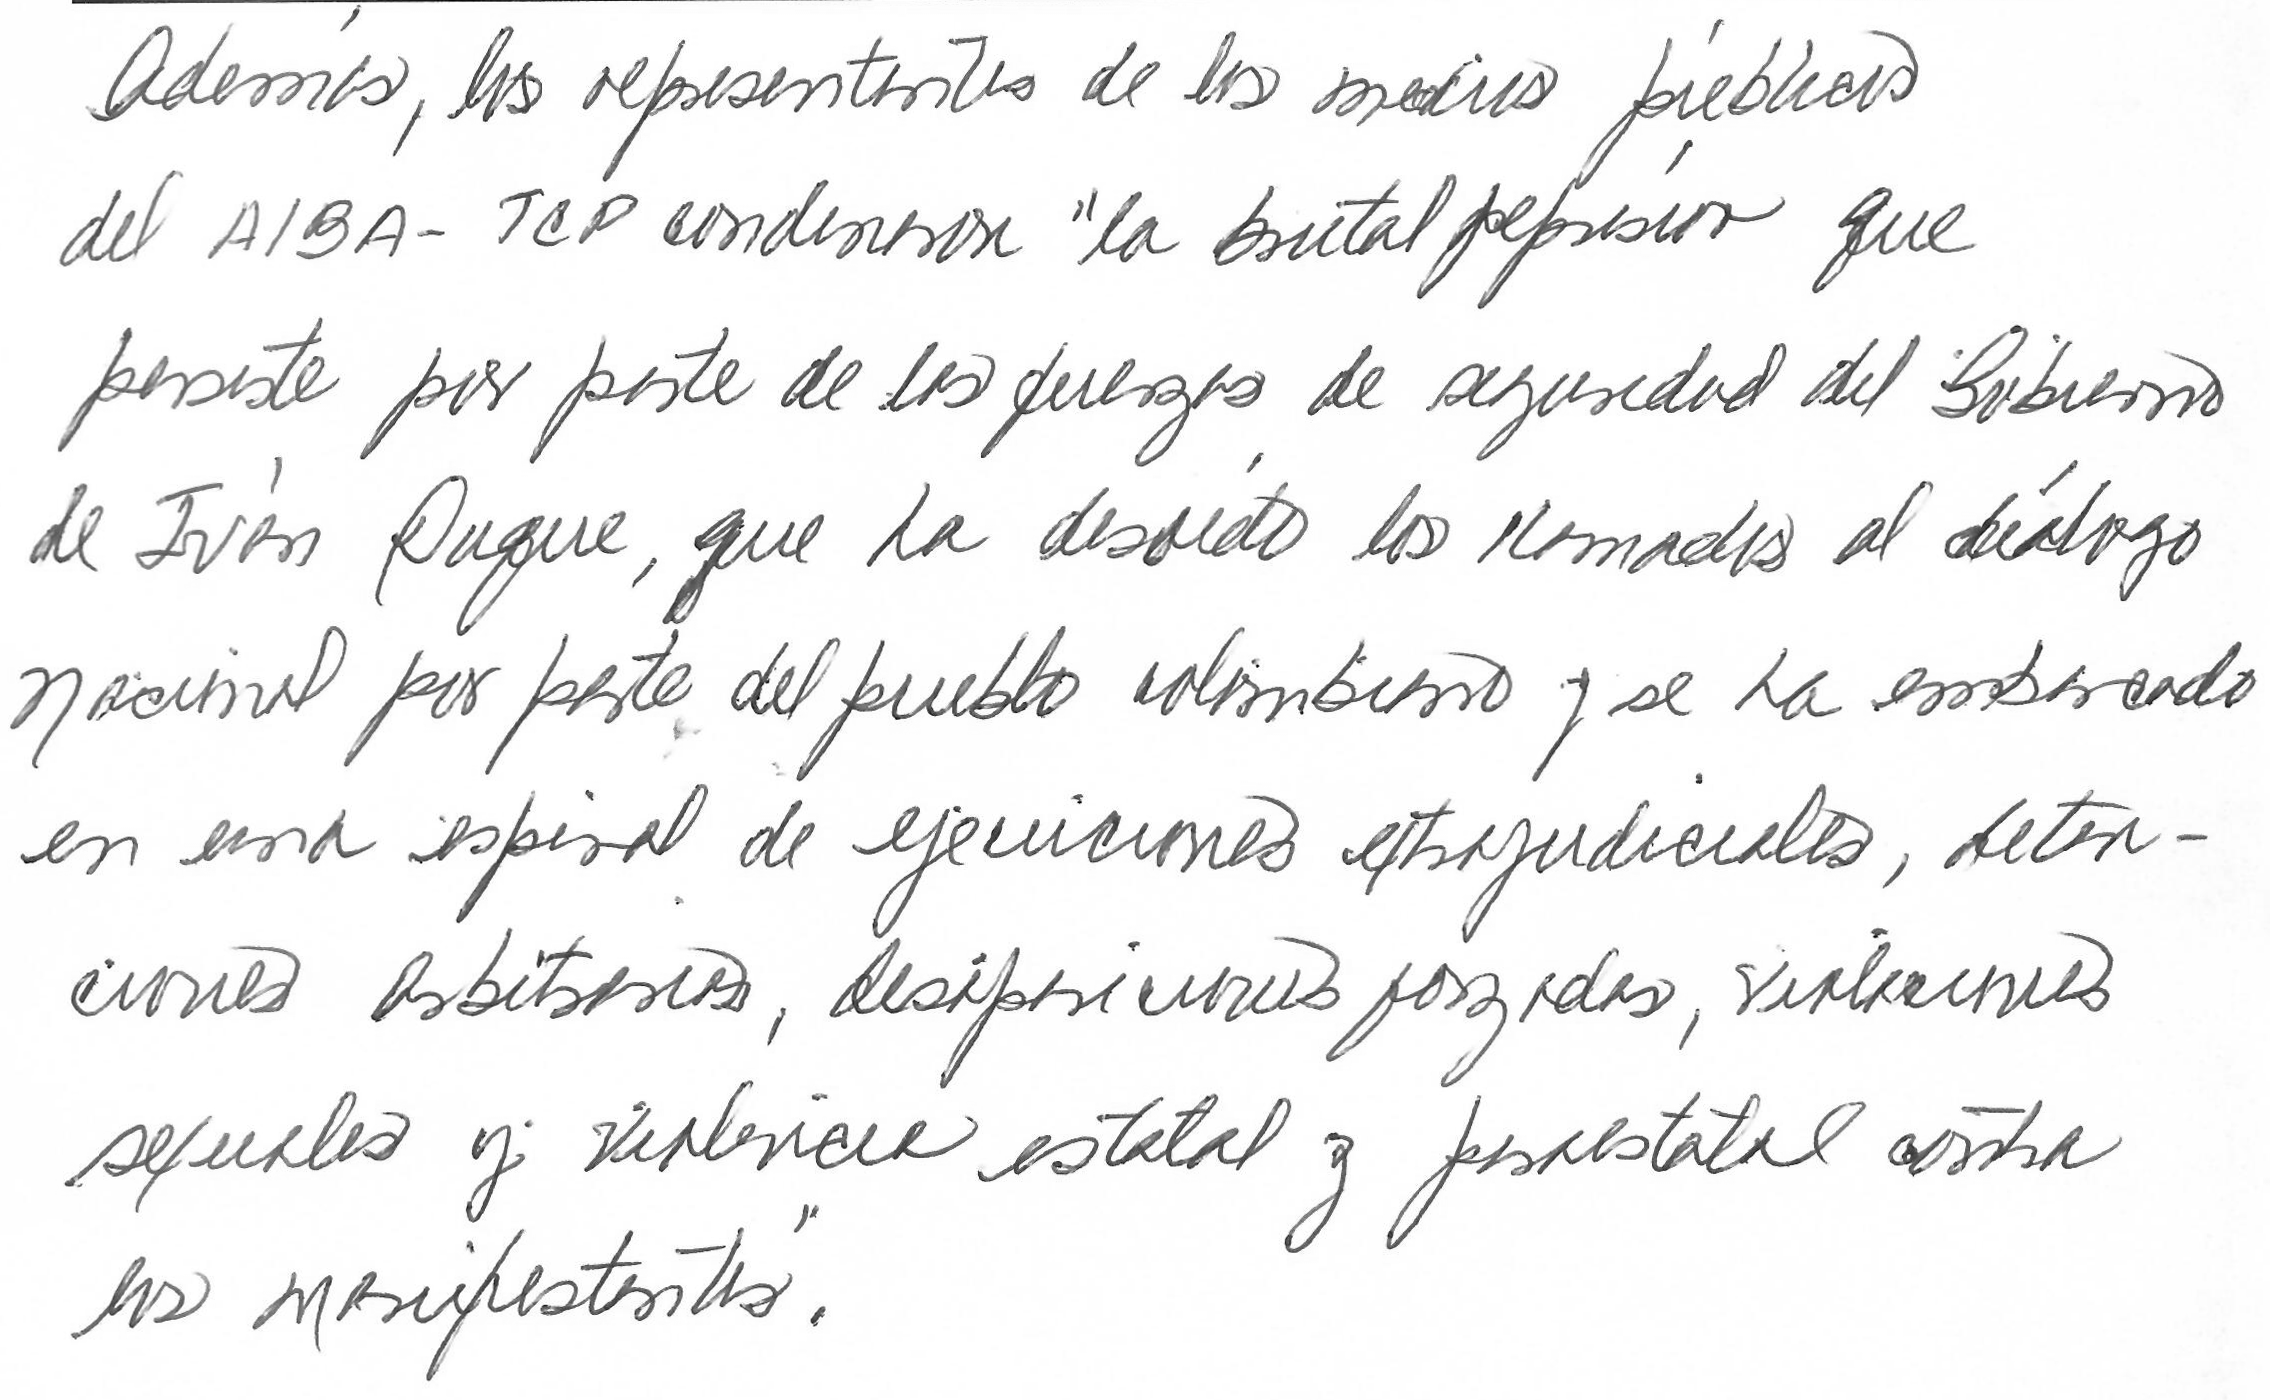 Además, los representantes de los medios públicos
del ALBA- TCP condenaron "la brutal represión que
persiste por parte de las fuerzas de seguridad del Gobierno
de Iván Duque, que ha desoído los llamados al diálogo
nacional por parte del pueblo colombiano y se ha embarcado
en una espiral de ejecuciones extrajudiciales, deten-
ciones arbitrarias, desapariciones forzadas, violaciones
sexuales y violencia estatal y paraestatal contra
los manifestantes".